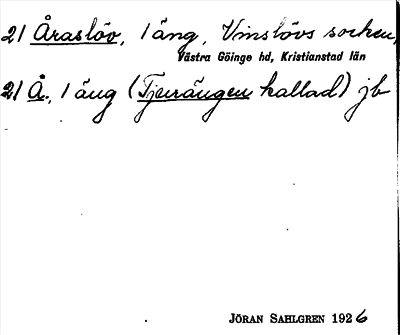 21 Åraslöv, 1 äng, Vinslövs socken,
Västra Göinge hd, Kristianstad län
21 Å., 1 äng (Tjurängen kallad) jb
JÖRAN SAHLGREN 1926